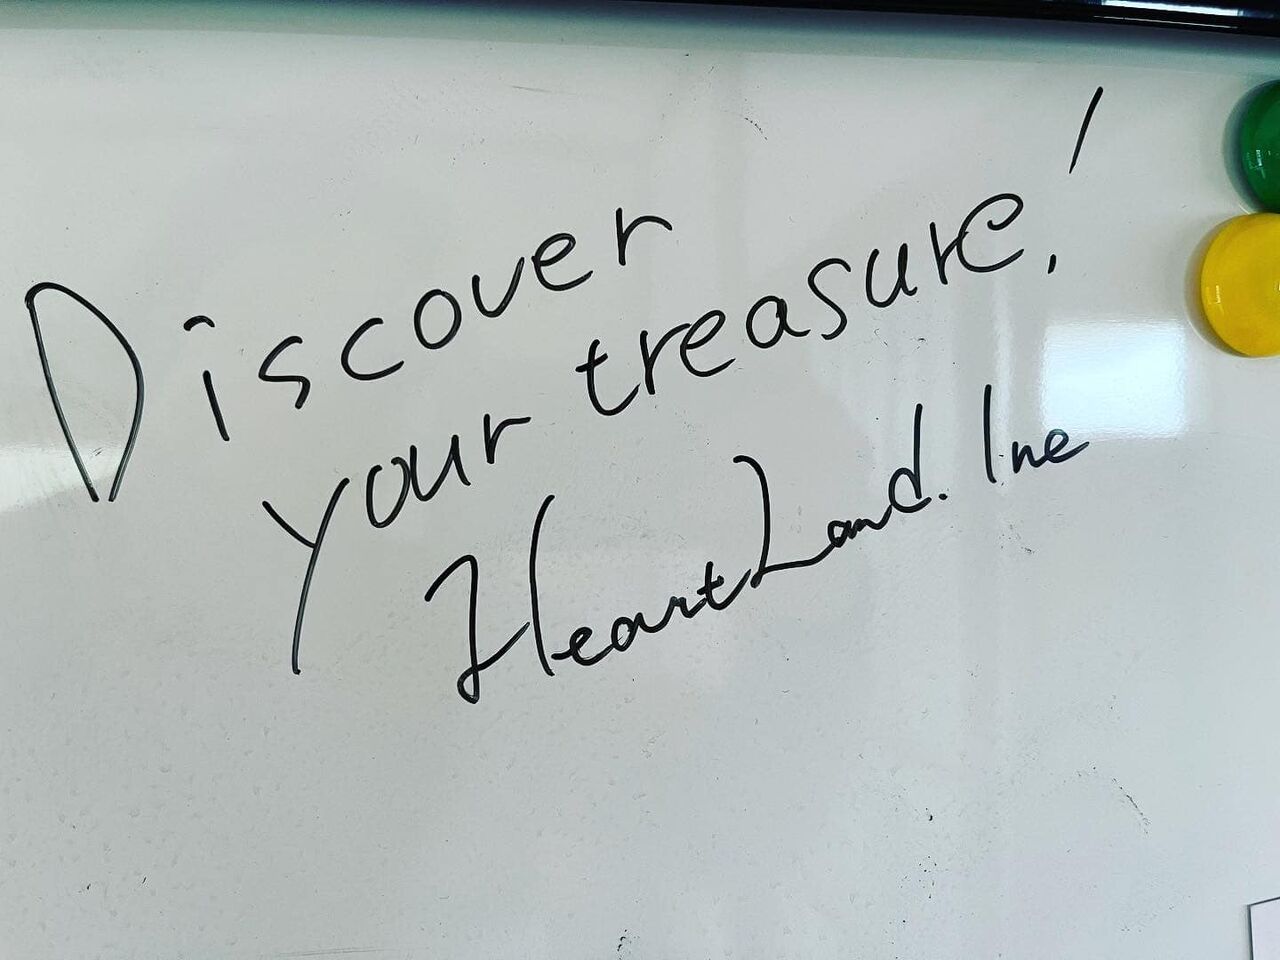 Discover
your treasure!
HeartLand. Ine